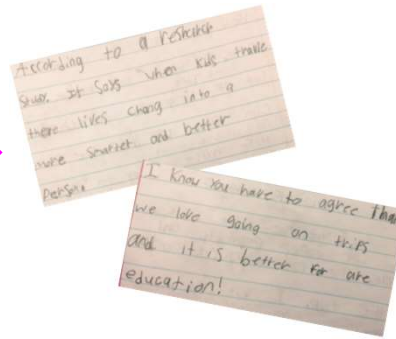 According to a research
study. It says when kids travle
there lives chang into a
more smarter and better
person.
I know you have to agree that
we love going on trips
and it is better for are
education!